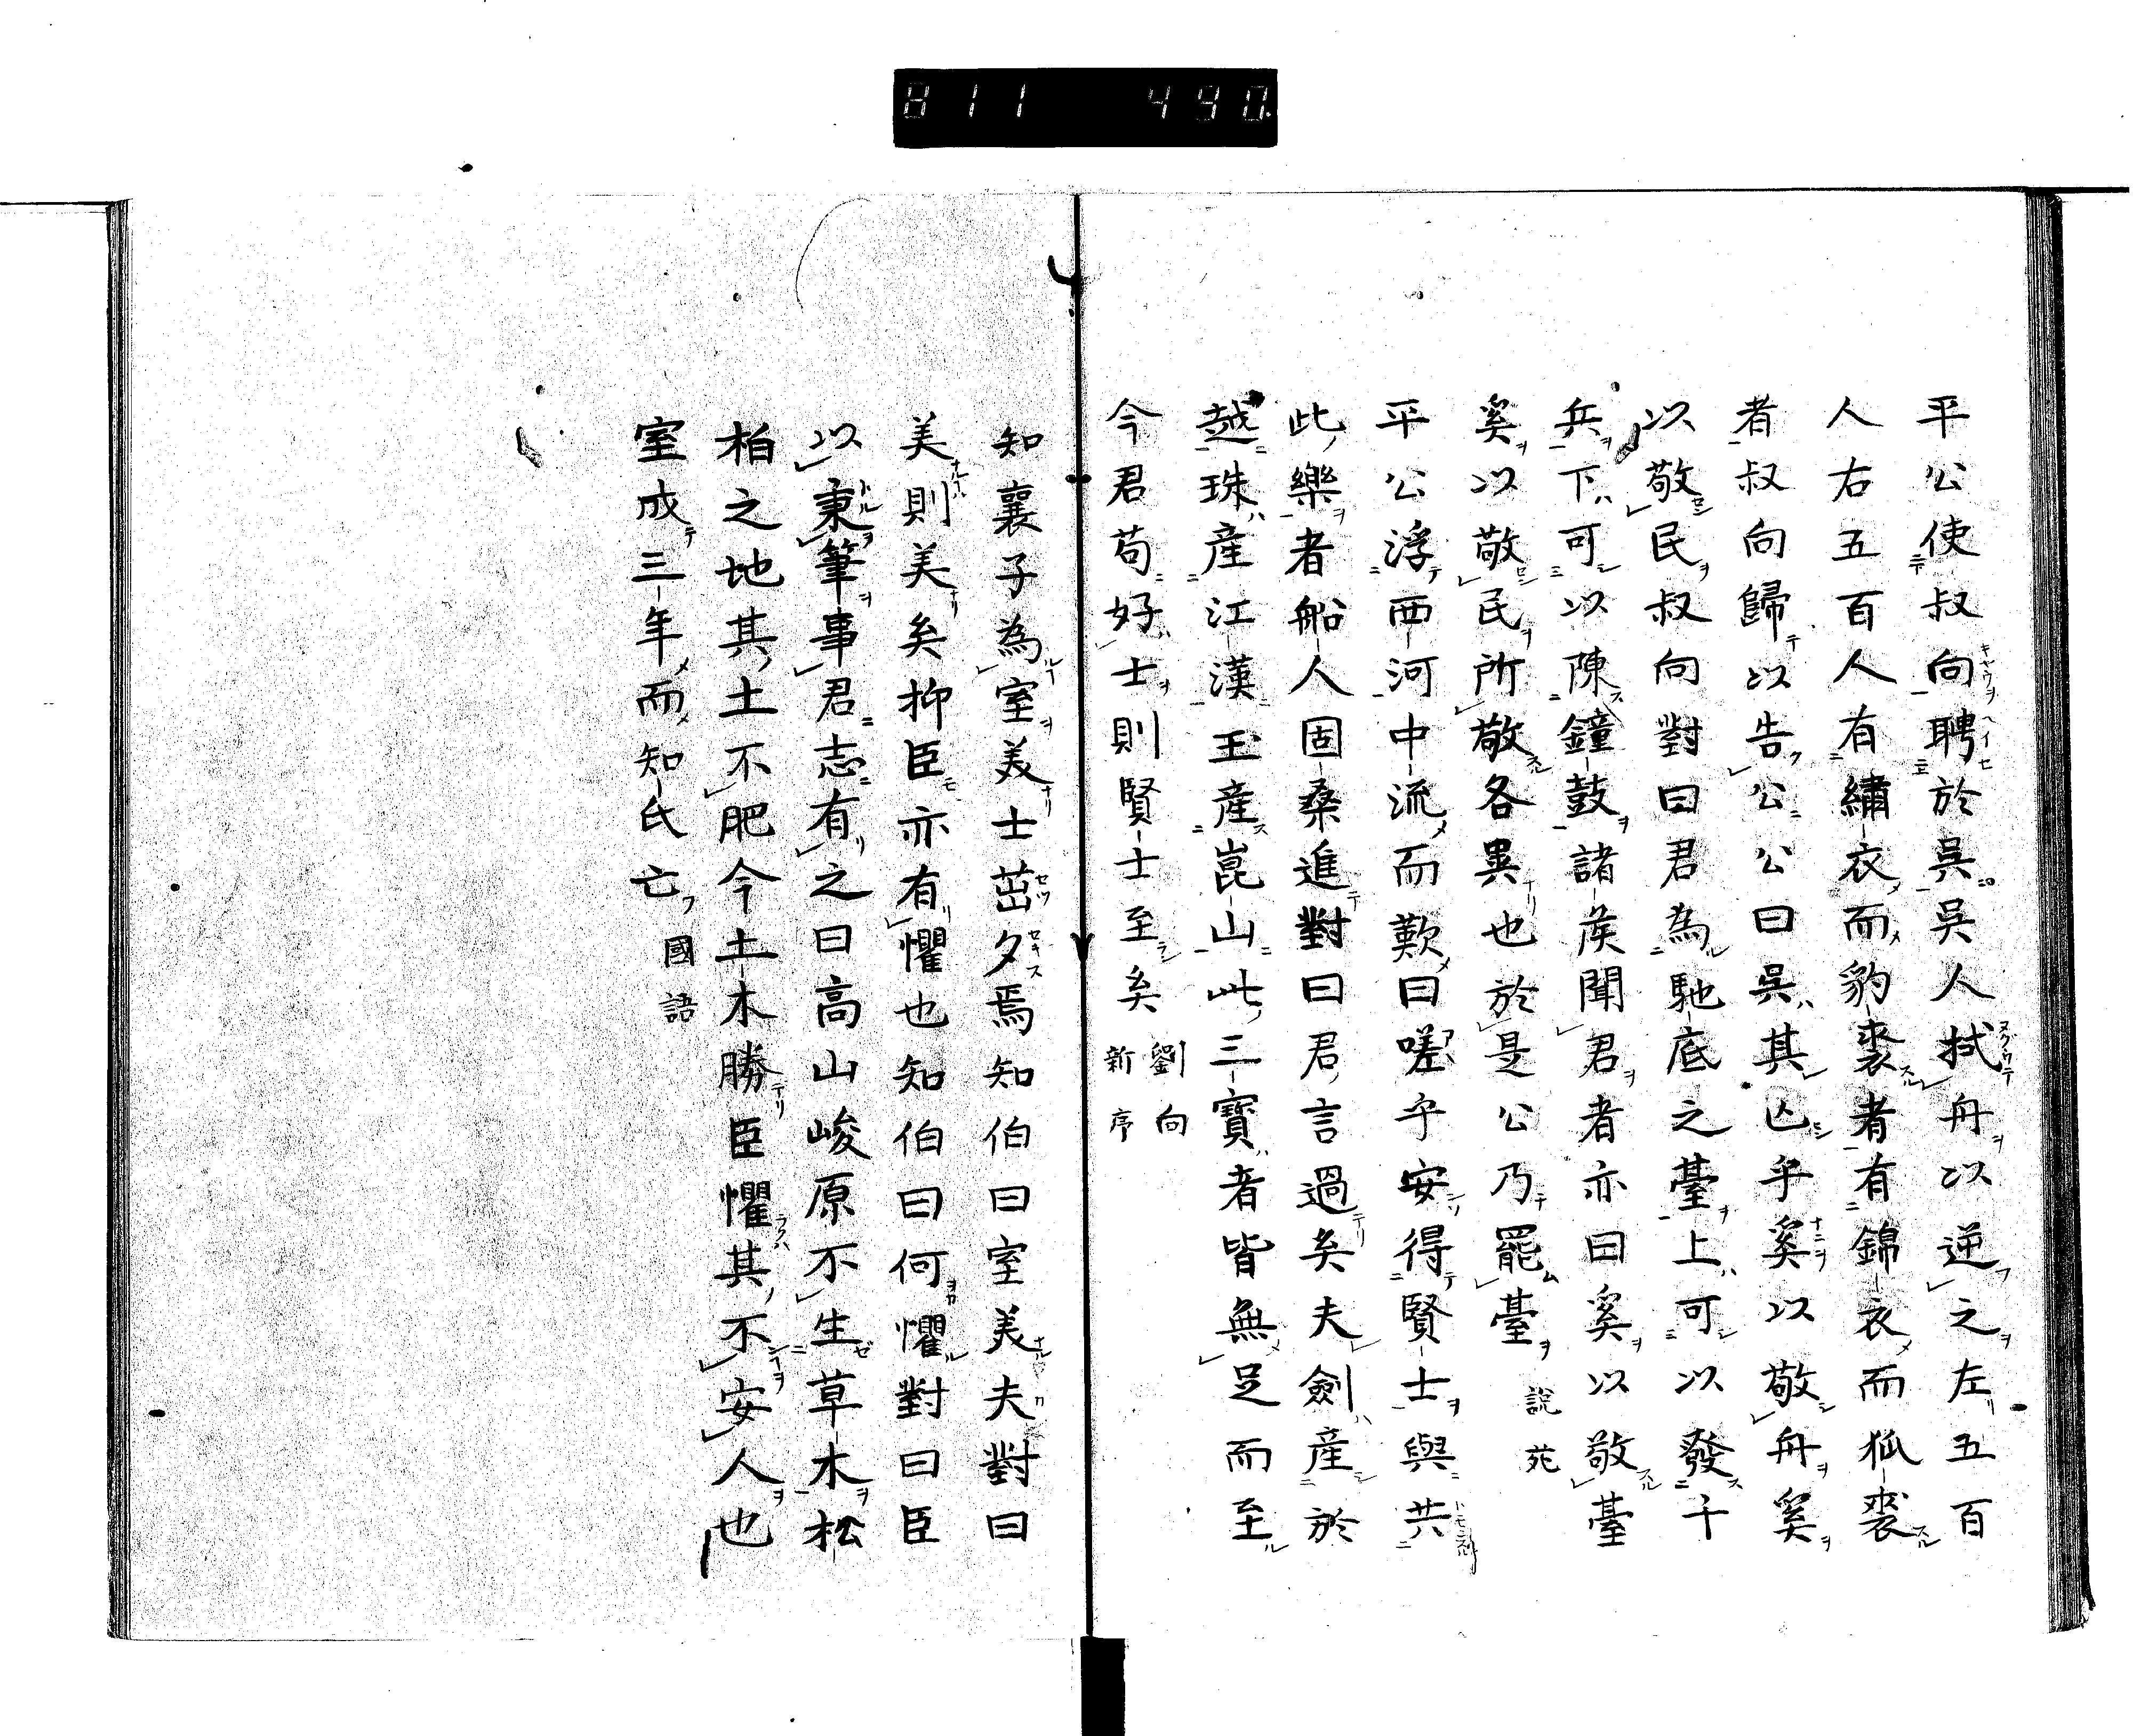 811 490.
平公使叔向聘於吳吳人拭舟以逆之左五百
人右五百人有繡衣而豹裘者有錦衣而狐裘
者叔向歸以告公公曰吳其亾乎奚以敬舟奚
以敬民叔向對曰君為馳底之臺上可以發千
兵下可以陳鐘鼓諸侯聞君者亦曰奚以敬臺
奚以敬民所敬各異也於是公乃罷臺 說苑
平公浮西河中流而歎曰嗟乎安得賢士與共
此樂者船人固桑進對曰君言過矣夫劍產於
越珠產江漢玉產崑山此三寶者皆無足而至
今君苟好士則賢士至矣 劉向
新序
知襄子為室美士茁夕焉知伯曰室美夫對曰
美則美矣抑臣亦有懼也知伯曰何懼對曰臣
以秉筆事君志有之曰高山峻原不生草木松
柏之地其土不肥今土木勝臣懼其不安人也
室成三年而知氏亡 國語